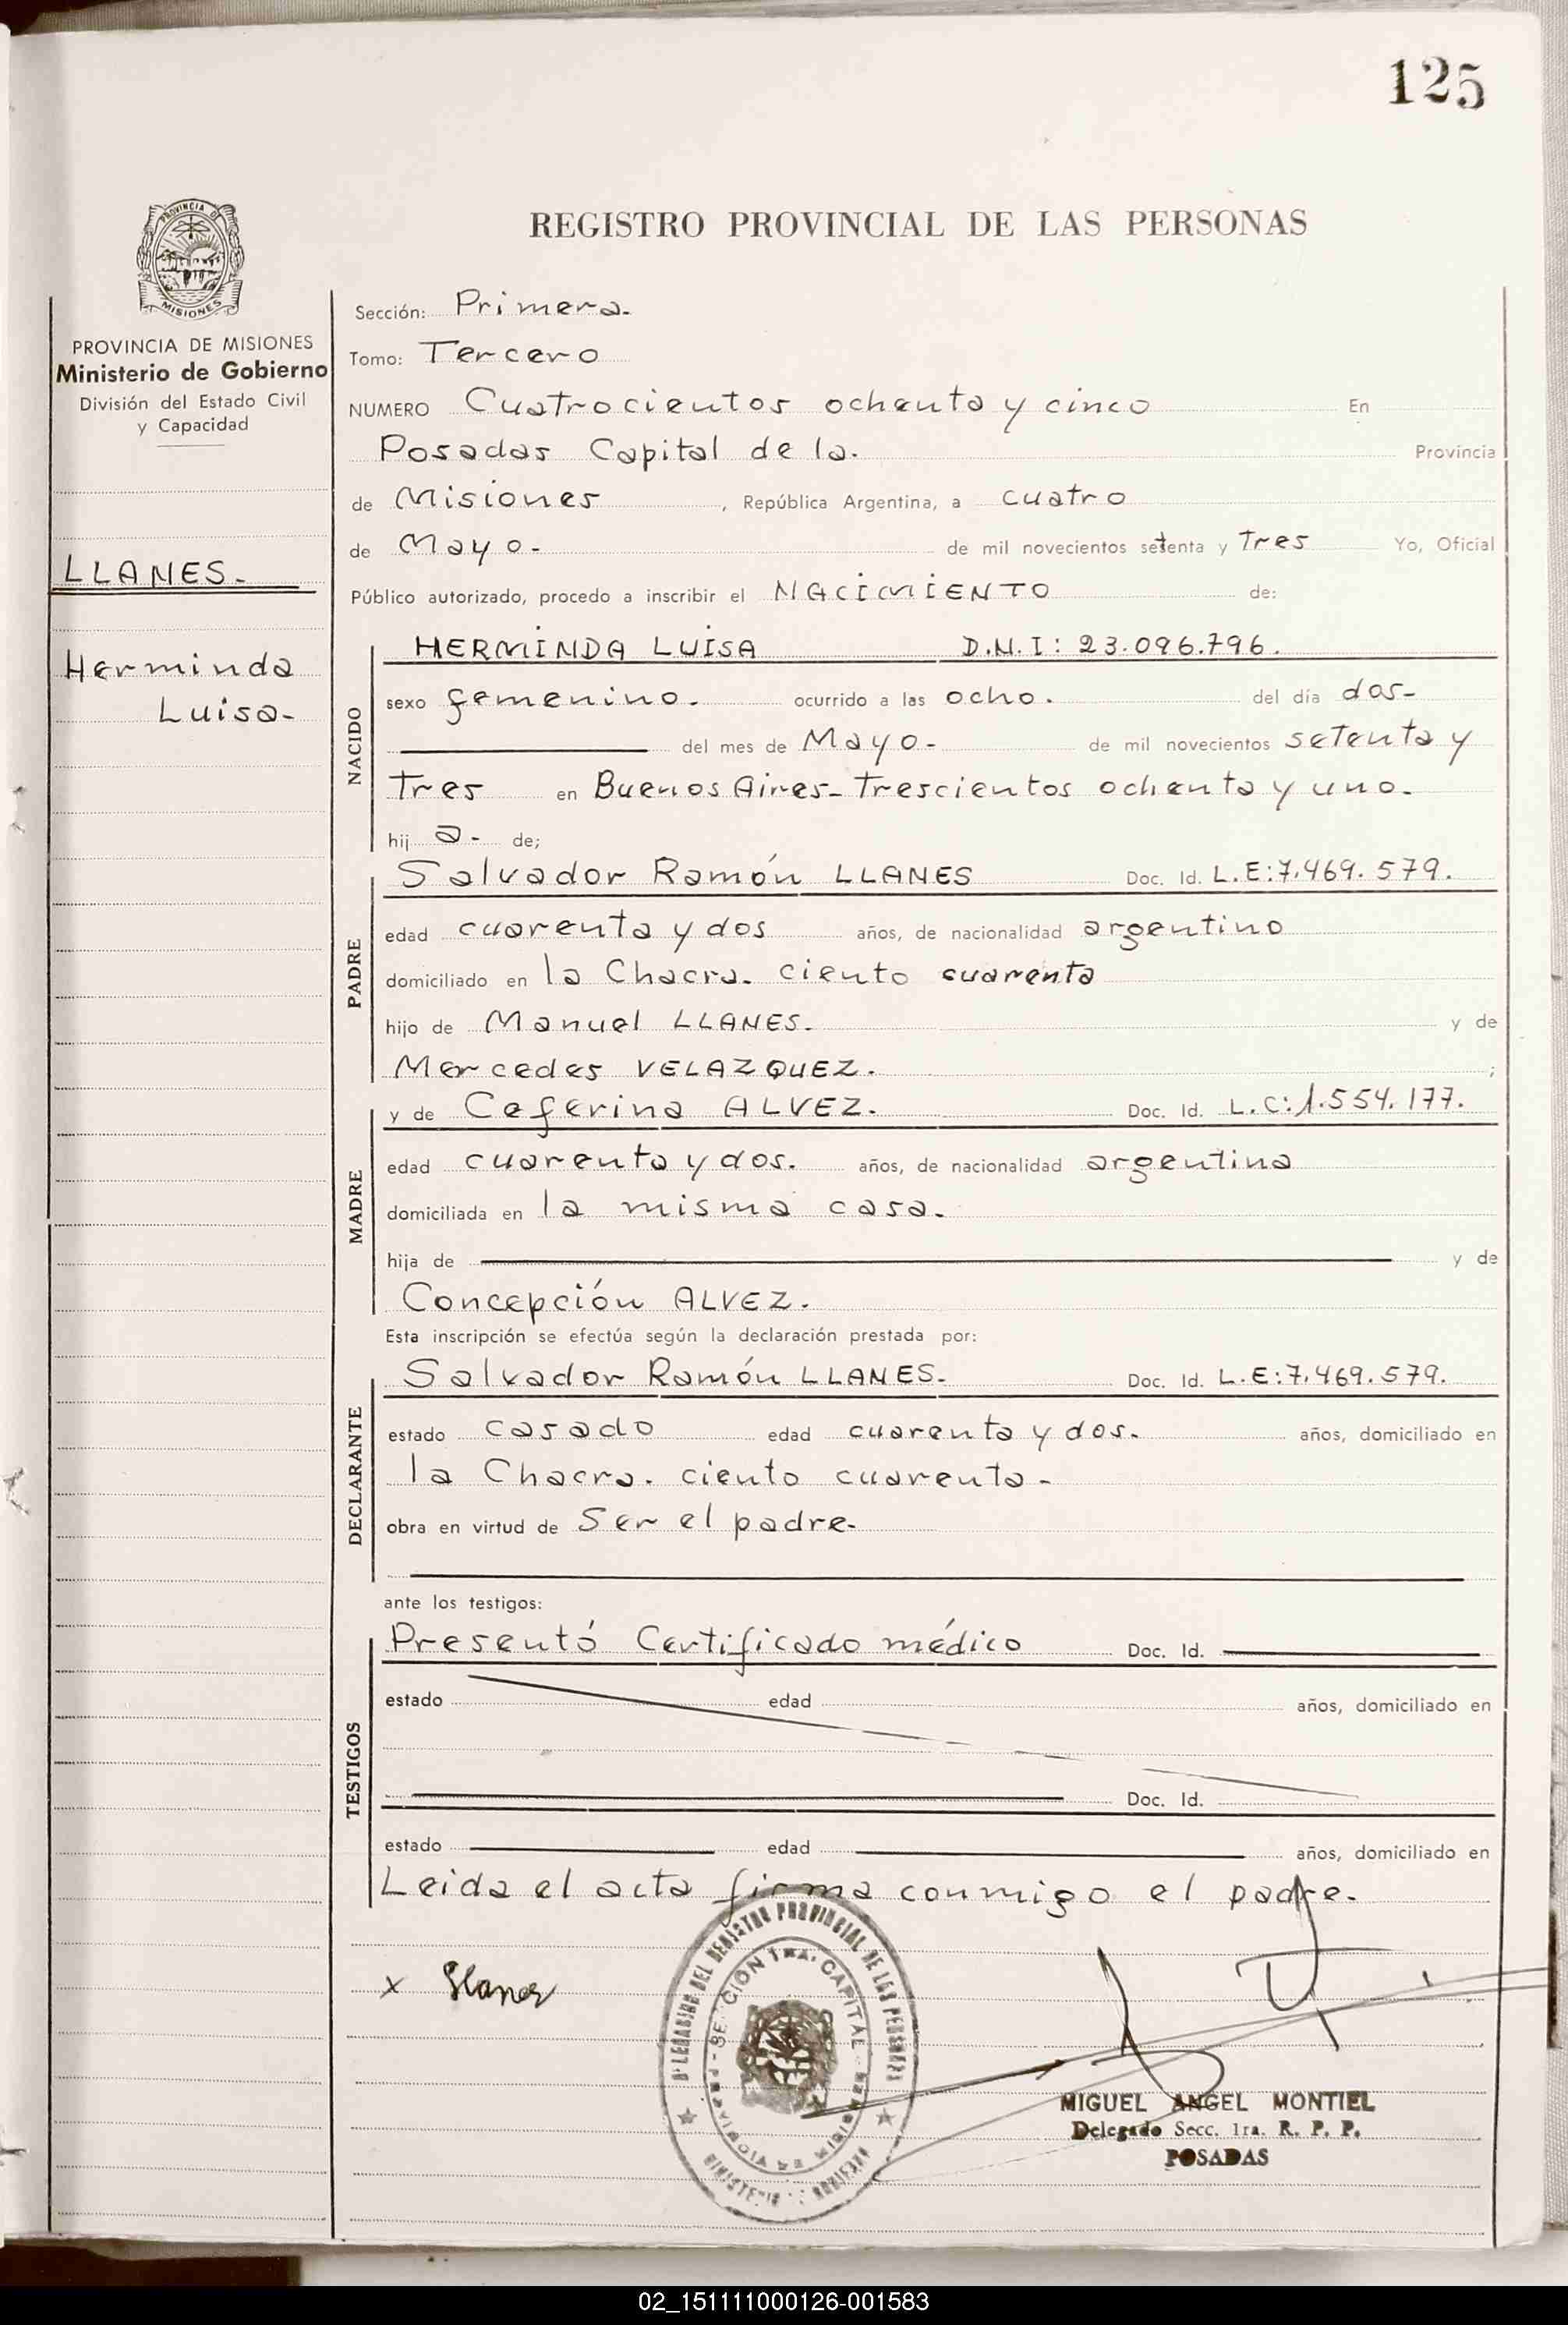 125
PROVINCIA DE
MISIONES
REGISTRO PROVINCIAL DE LAS PERSONAS
PROVINCIA DE MISIONES
Ministerio de Gobierno
División del Estado Civil
y Capacidad
LLANES.-
Herminda
Luisa-
Sección: Primera.
Tomo: Tercero
NUMERO Cuatrocientos ochenta y cinco En
Posadas Capital de la. Provincia
de Misiones, República Argentina, a cuatro
de Mayo.- de mil novecientos setenta y Tres Yo, Oficial
Público autorizado, procedo a inscribir el NACIMIENTO de:
NACIDO
HERMINDA LUISA D.N.I: 23.096.796.
sexo femenino. ocurrido a las ocho. del día dos-
del mes de Mayo.- de mil novecientos setenta y
Tres en Buenos Aires- Trescientos ochenta y uno.
hij a.- de;
PADRE
Salvador Ramón LLANES Doc. Id. L.E:7.469.579.
edad cuarenta y dos años, de nacionalidad argentino
domiciliado en la Chacra. ciento cuarenta
hijo de Manuel LLANES. y de
Mercedes VELAZQUEZ. ;
MADRE
y de Ceferina ALVEZ. Doc. Id. L.C:1.554.177.
edad cuarenta y dos. años, de nacionalidad argentina
domiciliada en la misma casa.
hija de y de
Concepción ALVEZ.
Esta inscripción se efectúa según la declaración prestada por:
DECLARANTE
Salvador Ramón LLANES. Doc. Id. L.E:7.469.579.
estado casado edad cuarenta y dos. años, domiciliado en
la Chacra. ciento cuarenta-
obra en virtud de Ser el padre.
ante los testigos:
TESTIGOS
Presentó Certificado médico Doc. Id.
estado edad años, domiciliado en
Doc. Id.
estado edad años, domiciliado en
Leida el acta firma conmigo el padre.
x Llanes
DELEGACION DEL REGISTRO PROVINCIAL DE LAS PERSONAS
SECCION 1RA. CAPITAL
PROVINCIA DE MISIONES
MIGUEL ANGEL MONTIEL
Delegado Secc. 1ra. R. P. P.
POSADAS
02_151111000126-001583